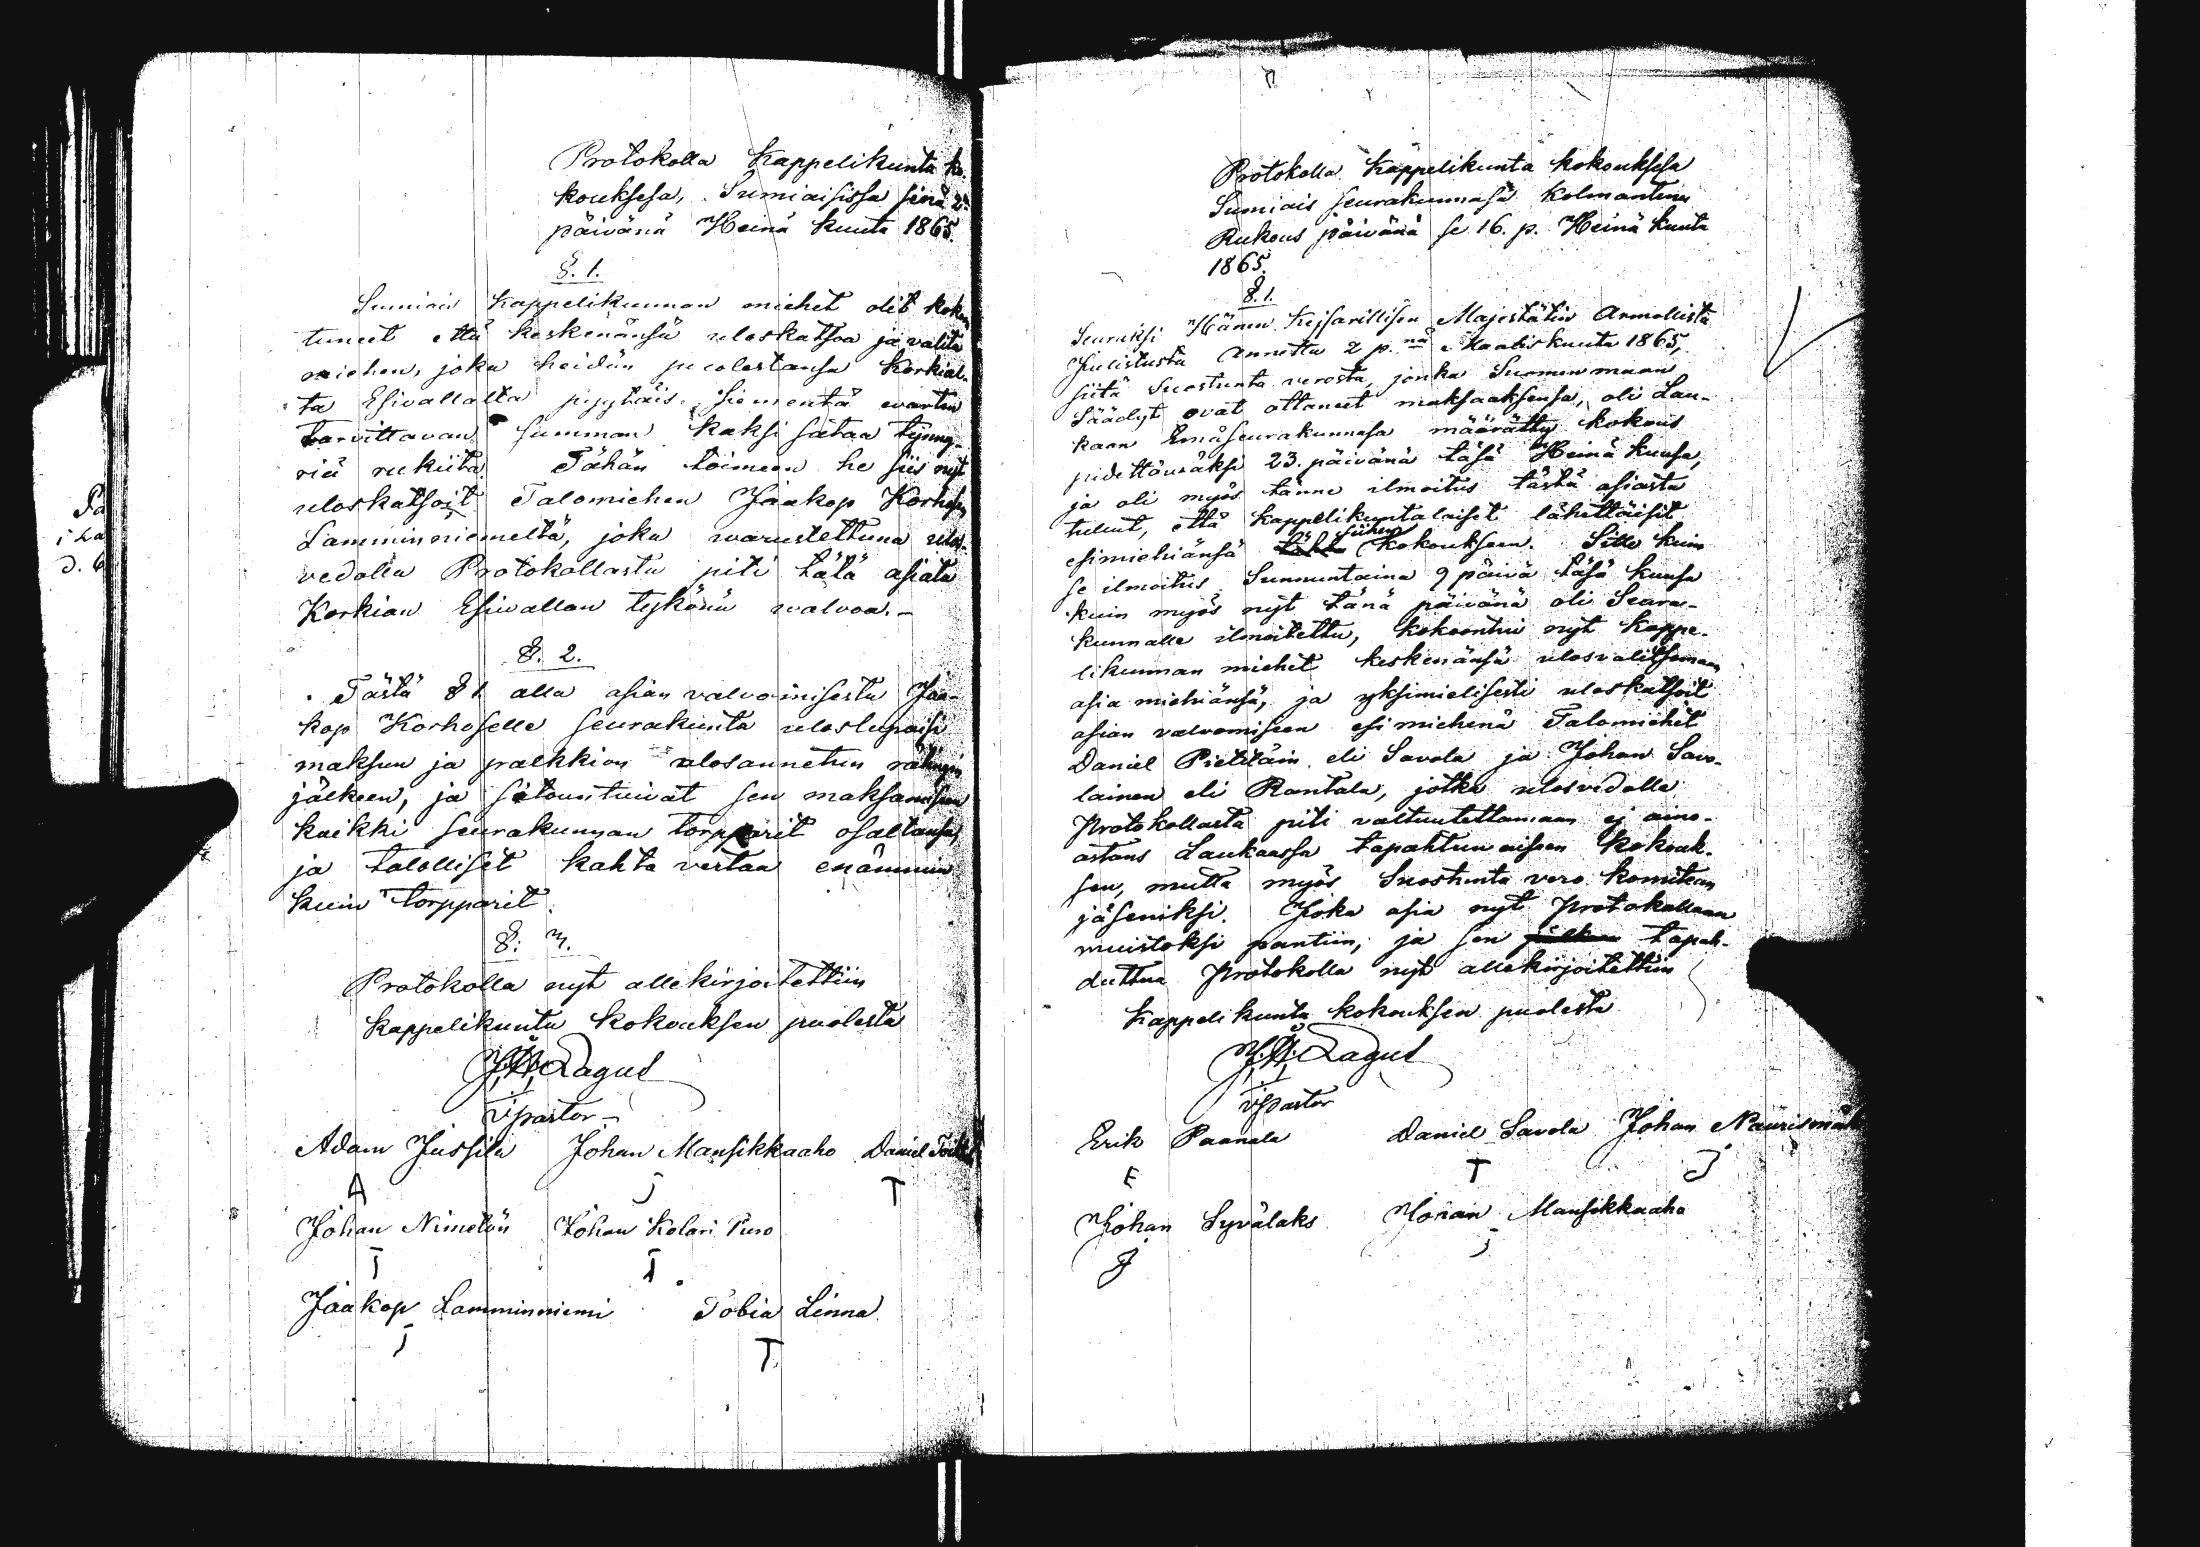 Protokolla Kappelikunta ko-
kouksesa, Sumiaisissa sinä 2:
päivänä Heinä kuuta 1865.
§. 1.
Sumiais Kappelikunnan miehet olit kokon
tuneet että keskenänsä uloskatsoa ja valita
miehen, joka heidän puolestansa Korkial-
ta Esivallalta pyytäis siementä warten
tarvittavan summan kaksi sataa tynny-
riä rukiita. Tähän toimeen he siis nyt
uloskatsoit Talomiehen Jaakop Korhosen
Lamminniemeltä, joka warustettuna ulos-
vedolla Protokollasta piti tätä asiata
Korkian Esivallan tykönä walvoa. -
§. 2.
Tästä § 1 alla asian valvomisesta Jaa-
kop Korhoselle seurakunta uloslupaisi
maksun ja palkkion ulosannetun räkingin
jälkeen, ja sitountuivat sen maksamiseen
kaikki seurakunnan torpparit osaltansa,
ja talolliset kahta vertaa enämmin
kuin torpparit.
§. 3.
Protokolla nyt allekirjoitettiin
Kappelikunta kokouksen puolesta
J. W. Lagus
v pastor -
Adam Jussila Johan Mansikkaaho Daniel
A J T
Johan Nimetön Johan Kolari Puro
J J
Jaakop Lamminniemi Tobia Linna
J T
Protokolla Kappelikunta kokouksesa
Sumiais seurakunnasa Kolmantena
Rukous päivänä se 16. p. Heinä kuuta
1865.
§. 1.
Seuraksi Hänen Kejsarillisen Majestätin Armollista
Julistusta Annettu 2 p.nä Maaliskuuta 1865,
siitä Suostunta verosta, jonka Suomenmaan
Säädyt ovat ottaneet maksaaksensa, oli Lau-
kaan Emäseurakunnasa määrätty kokous
pidettäväksi 23. päivänä täsä Heinä kuusa,
ja oli myös tänne ilmoitus tästä asiasta
tullut, että Kappelikuntalaiset lähettäisit
esimiehiänsä siihen kokoukseen. Sitte kuin
se ilmoitus Sunnuntaina 9 päivä täsä kuusa
kuin myös nyt tänä päivänä oli Seura-
kunnalle ilmoitettu, kokoontui nyt Kappe-
likunnan miehet keskenänsä ulosvalitsemaan
asia miehiänsä, ja yksimielisesti uloskatsoit
asian valvomiseen esimiehenä Talomiehet
Daniel Pietiläin eli Savola ja Johan Savo-
lainen eli Rantala, jotka ulosvedolla
Protokollasta piti valtuutettamaan ej aino-
astans Laukaassa tapahtuvaiseen kokouk-
sen, mutta myös Suostunta vero komitean
jäseniksi. Joka asia nyt Protokollaan
muistoksi pantiin, ja sen jälkeen tapah-
duttua Protokolla nyt allekirjoitettiin
Kappelikunta kokouksen puolesta
J. W. Lagus
v Pastor
Erik Paanala Daniel Savola Johan Naurismäk
E T J
Johan Syvälaks Johan Mansikkaaho
J J